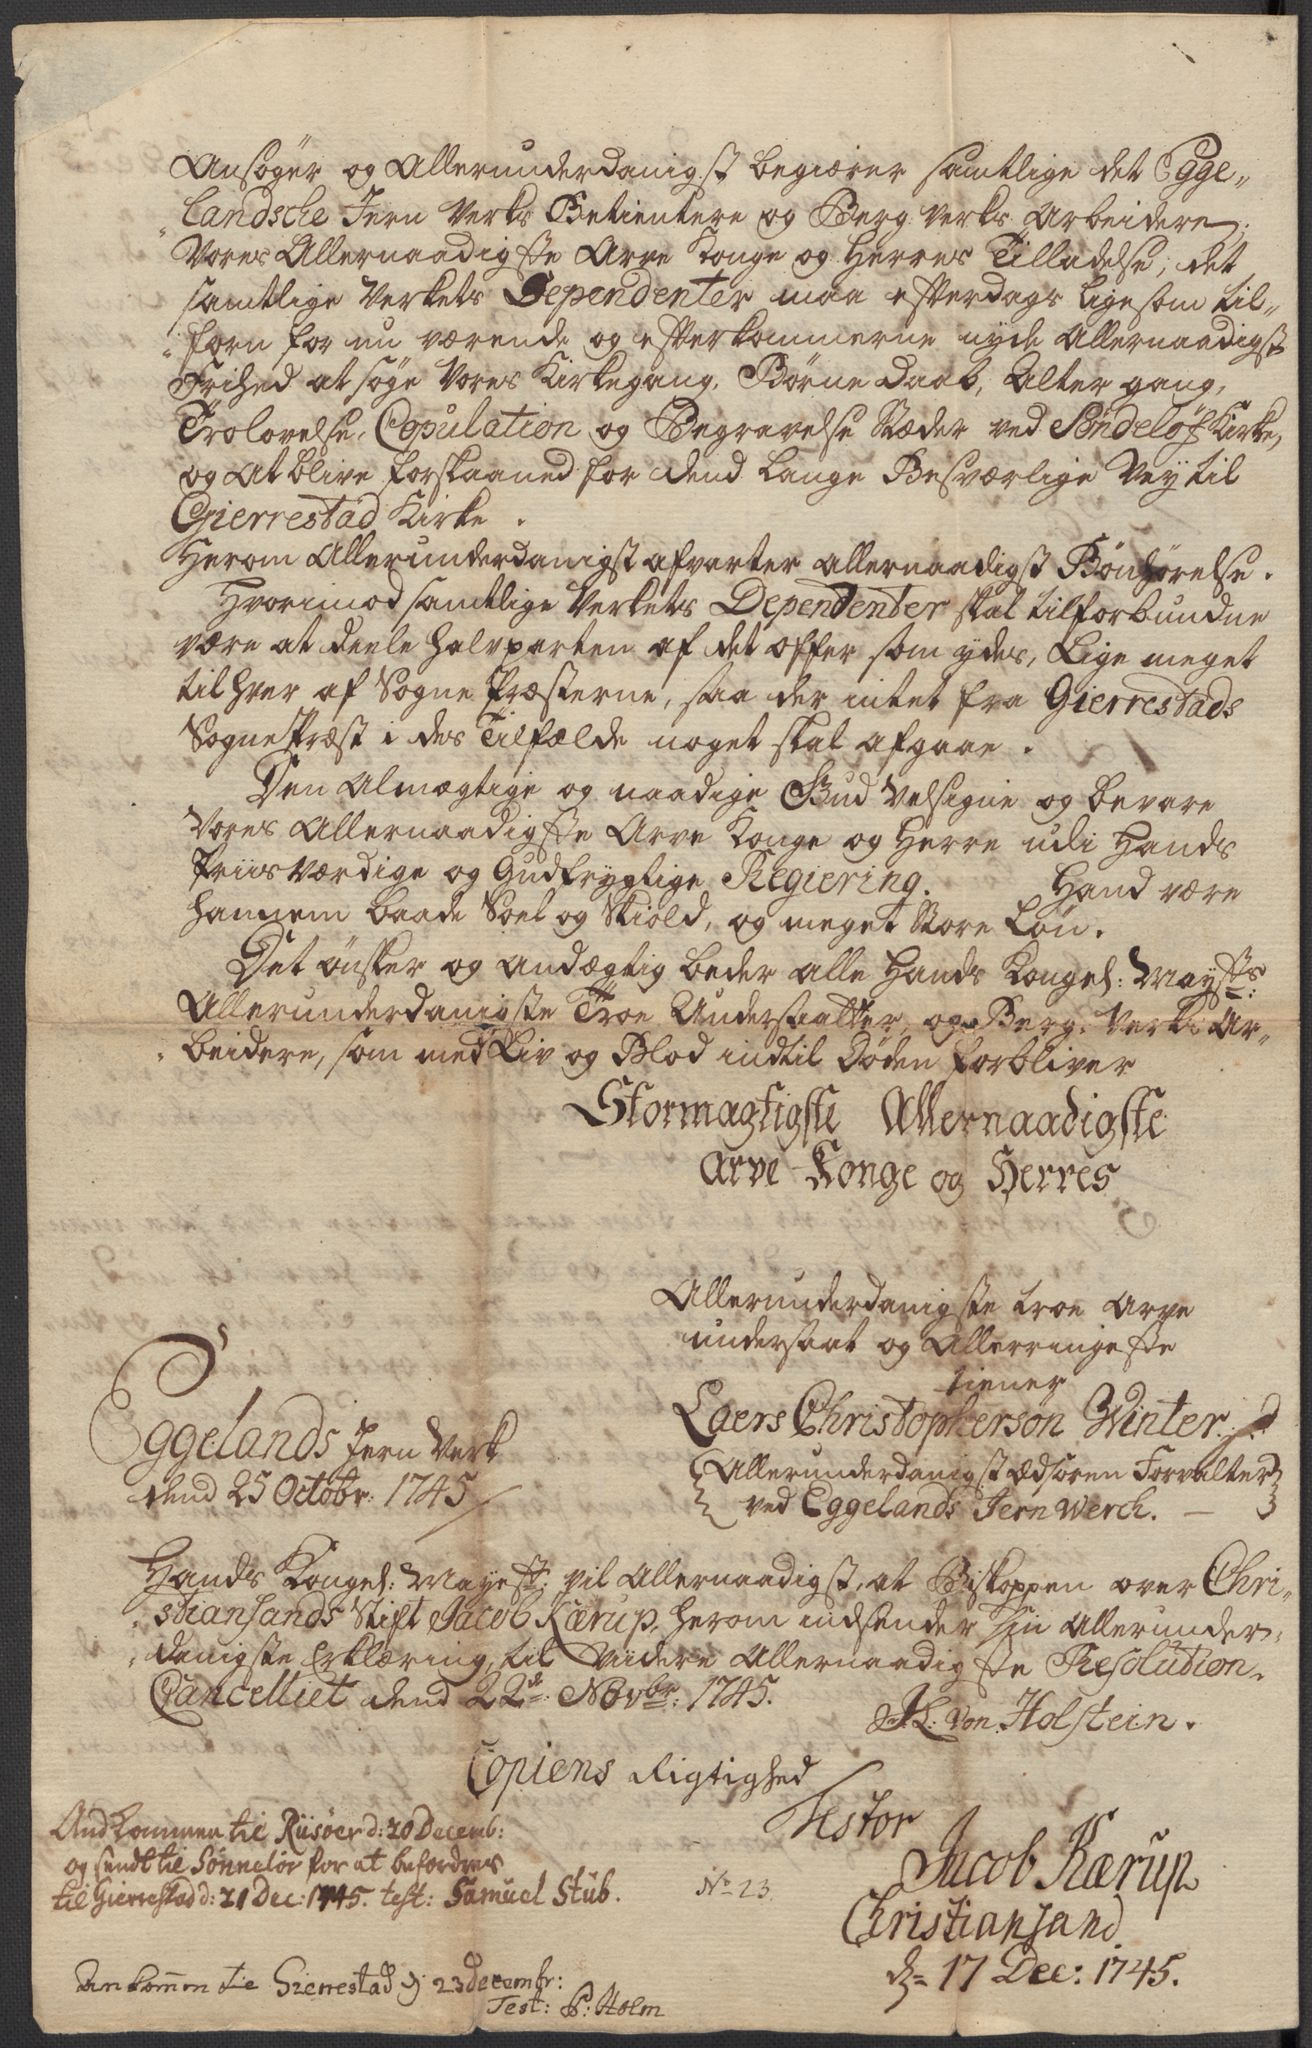 Ansøger og Allerunderdanigst begiærer samtlige det Egge„
„landsche Jern Verks Betientere og Berg Verks Arbeidere,
Vores Allernaadigste Arve Konge og Herres Tilladelse, det
samtlige Verkets Dependenter maa efterdags ligesom til„
„forn for nu værende og efterkommerne nyde Allernaadigst
Frihed at søge Vores Kirkegang, Børne Daab, Alter gang,
Trolovelse, Copulation og Begravelse Stæder ved Søndeløf Kirke,
og at blive forskaaned for dend lange Besværlige Vey til
Gierrestad Kirke.
Herom Allerunderdanigst afvarter allernaadigst Bønhørelse.
Hvorimod samtlige Verkets Dependenter skal tilforbundne
være at deele halvparten af det offer som ydes, Lige meget
til hver af Sogne Præsterne, saa der intet fra Gierrestads
Sogne Præst i des Tilfælde noget skal afgaae.
Den Almægtige og naadige Gud Velsigne og bevare
Vores Allernaadigste Arve Konge og Herre udi Hands
Priisværdige og Gudfrygtige Regiering. Hand være
hannem baade Soel og Skiold, og meget Store Løn.
Det ønsker og andægtig beder alle Hands Kongel: Mayts:
Allerunderdanigste Troe Undersaatter, og Berg-Verks Ar„
„beidere, som med Liv og Blod indtil Døden forbliver
Stormagtigste Allernaadigste
Arve-Konge og Herres
Allerunderdanigste troe Arve
undersaat og Allerringeste
tiener
Laers Christophersøn Winter.
Allerunderdanigst Ædsoren Forvalter
ved Eggelands Jern Werch.
Eggelands Jern Verk
dend 25 Octobr: 1745
Hands Kongel: Mayest: vil Allernaadigst, at Biskoppen over Chri„
„stiansands Stift Jacob Kærup, herom indsender sin Allerunder„
„danigste Erklæring, til Viidere Allernaadigste Resolution.
Cancelliet dend 22de Novbr: 1745.
J. L. von Holstein.
Copiens Rigtighed
Testor
Jacob Kærup
Christiansand
d= 17 Dec: 1745.
Andkommen til Riisøer d: 20 Decemb:
og sendt til Sønneløv for at befordres
til Gierrestad d: 21 Dec: 1745. test: Samuel Stub.
No 23.
Ankommen til Gierrestad d 23 Decembr:
Test: P: Holm